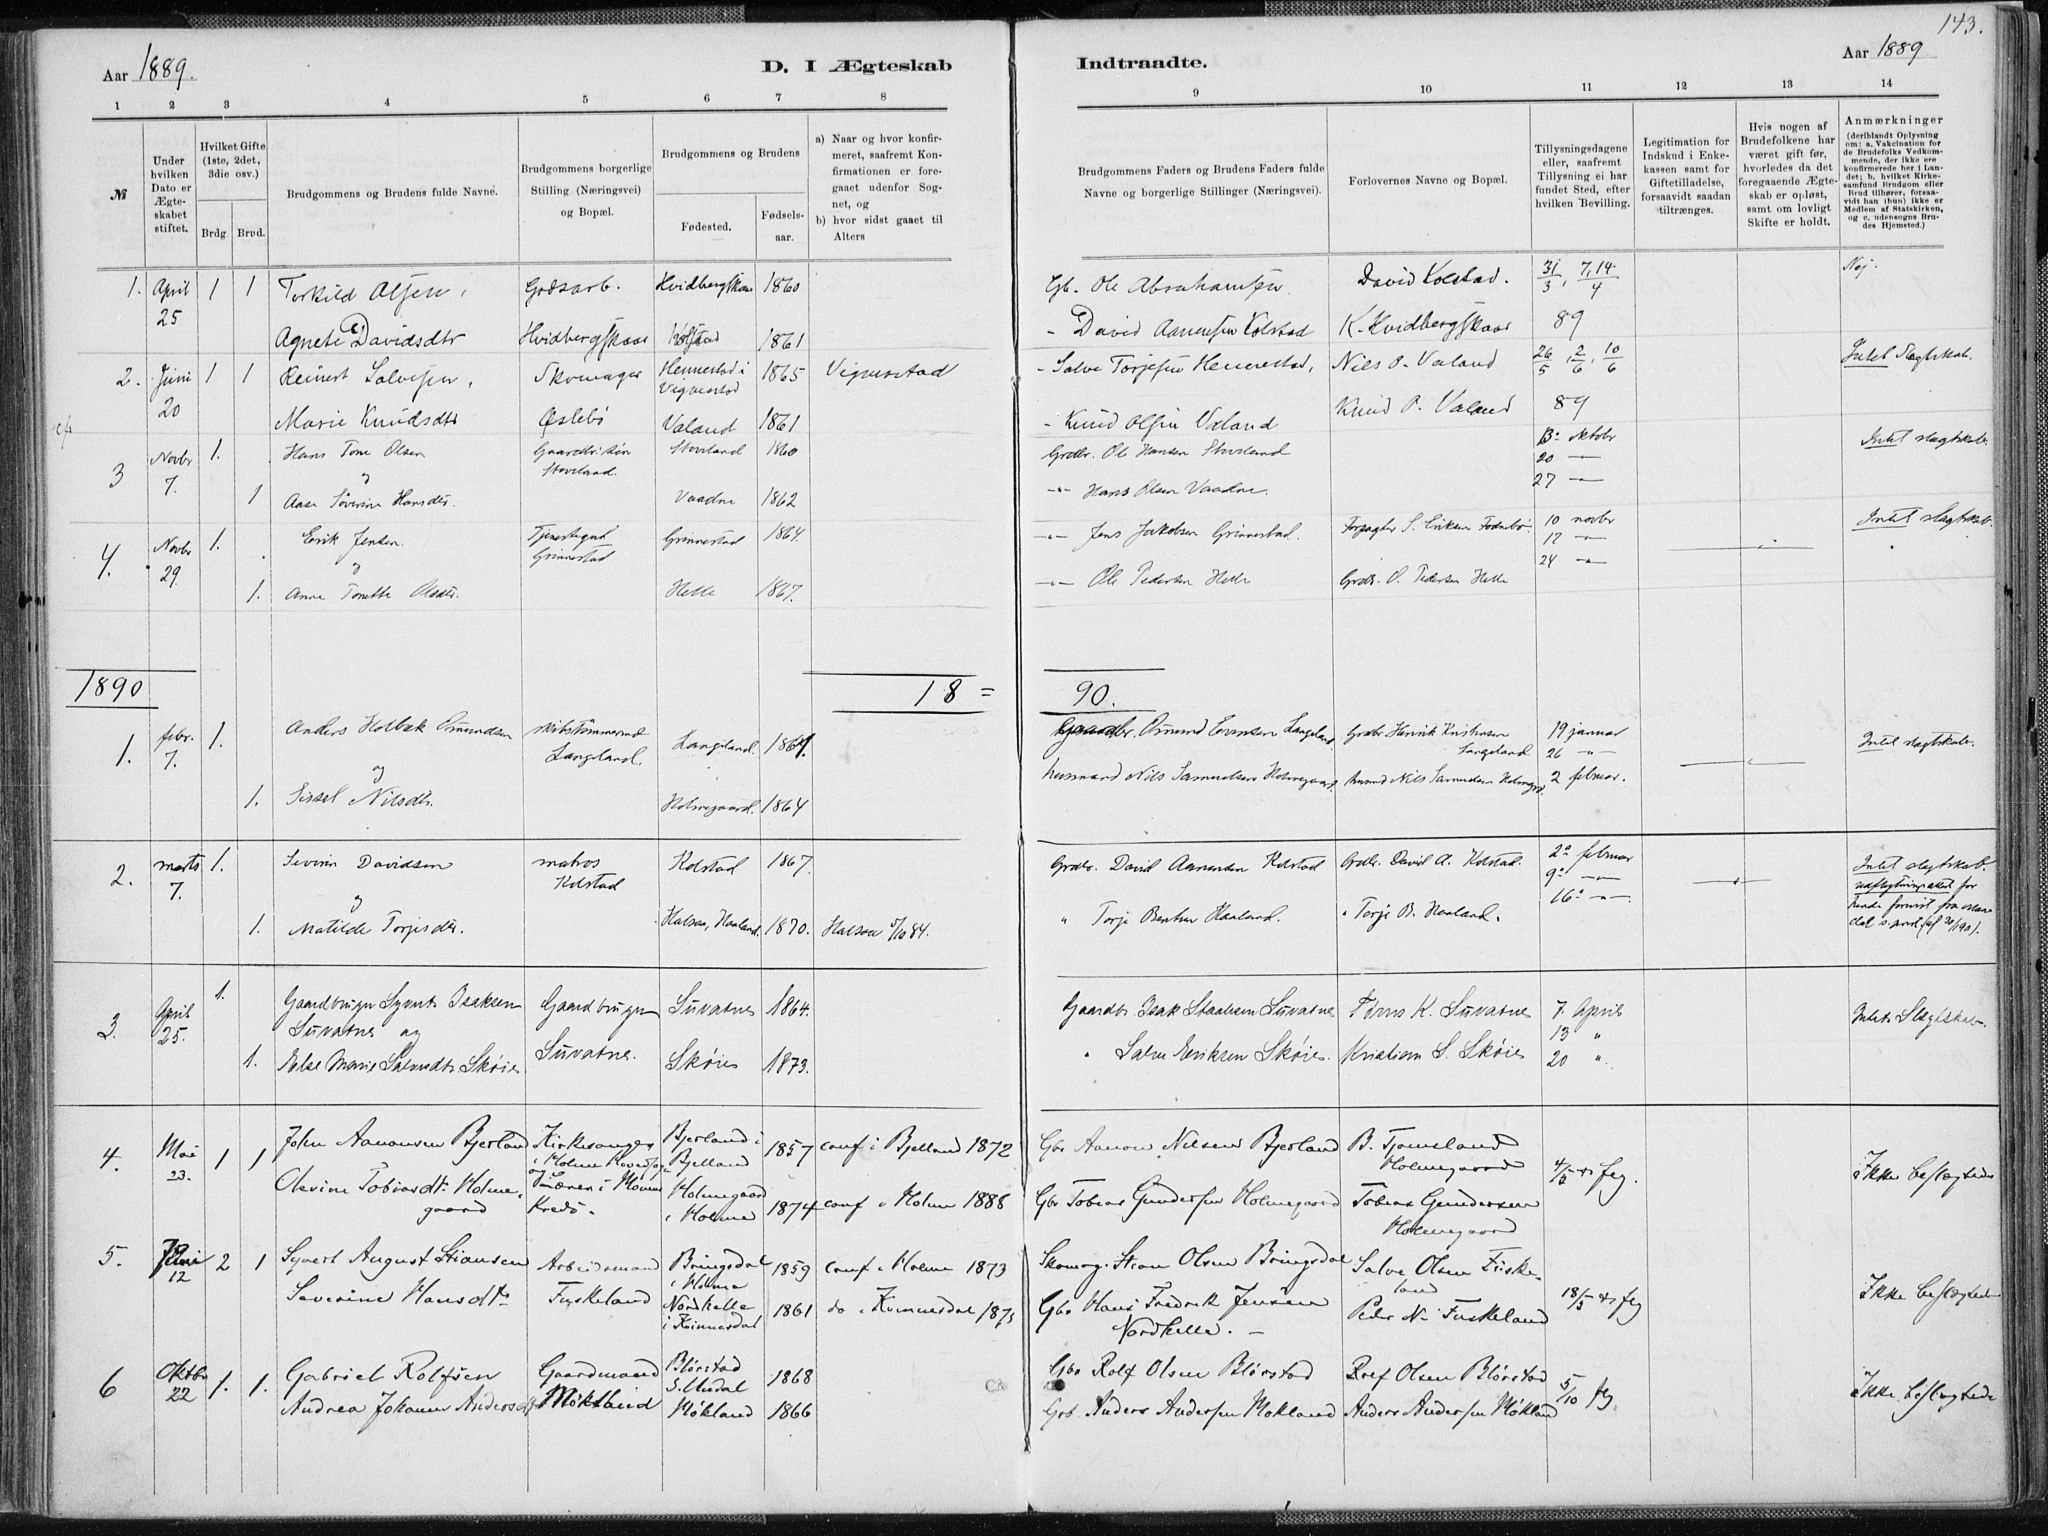 143.
Aar 1889.
D. I Ægteskab
Indtraadte.
Aar 1889
1 2 3 4 5 6 7 8
9 10 11 12 13 14
№
Under hvilken Dato er Ægteskabet stiftet.
Hvilket Gifte (1ste, 2det, 3die osv.)
Brdg. Brud.
Brudgommens og Brudens fulde Navne.
Brudgommens borgerlige Stilling (Næringsvei) og Bopæl.
Brudgommens og Brudens
Fødested.
Fødselsaar.
a) Naar og hvor konfirmeret, saafremt Konfirmationen er foregaaet udenfor Sognet, og
b) hvor sidst gaaet til Alters
Brudgommens Faders og Brudens Faders fulde Navne og borgerlige Stillinger (Næringsvei).
Forlovernes Navne og Bopæl.
Tillysningsdagene eller, saafremt Tillysning ei har fundet Sted, efter hvilken Bevilling.
Legitimation for Indskud i Enkekassen samt for Giftetilladelse, forsaavidt saadan tiltrænges.
Hvis nogen af Brudefolkene har været gift før, hvorledes da det foregaaende Ægteskab er opløst, samt om lovligt Skifte er holdt.
Anmærkninger
(deriblandt Oplysning om: a. Vakcination for de Brudefolks Vedkommende, der ikke ere konfirmerede her i Landet; b. hvilket Kirkesamfund Brudgom eller Brud tilhører, forsaavidt han (hun) ikke er Medlem af Statskirken, og c. udensogns Brudes Hjemsted.)
1. April 1 1 Torkild Olsen, Gaardsarb. Hvidbergskaar 1860 Gb. Ole Abrahamsen David Kolstad. 31/3, 7, 14/4 Nei.
25 Agnete Davidsdtr Hvidbergskaar Kolstad 1861 - David Aanensen Kolstad K. Hvidbergskaar 89
2. Juni 1 1 Reinert Salvesen, Skomager Hennestad i Vigmostad 1865 Vigmostad - Salve Torjesen Hennestad, Nils O. Valand 26/5, 2/6, 10/6 Intet Slegtskab.
20 Marie Knudsdtr Øslebø Valand 1861 - Knud Olsen Valand Knud O. Valand 89
3 Novbr 7. 1. Hans Tone Olsen Stoveland Stoveland 1860 Grdbr. Ole Hansen Stoveland 13de oktobr Intet slegtskab.
og 20 —
1 Aase Severine Hansdtr. Vaadne 1862 -"- Hans Olsen Vaadne. 27 —
4. Novbr 29. 1. Erik Jensen. Tjenestegut Grinnestad Grinnestad 1864. -"- Jens Jakobsen Grinnestad. Forpagter S. Eriksen 10 novbr Intet slegtskab.
og 17 -"-
1. Anne Tonette Olsdtr. Helle 1867. -"- Ole Pedersen Helle Grdbr. O. Pedersen Helle 24 -"-
1890 18 = 90.
1. febr. 7. 1. Anders Holbek Omundsen skibstømmermand Langeland. Langeland. 1864. Gaardbr. Omund Evensen Langeland Grdbr. Henrik Langeland 19 januar Intet slegtskab.
og 26 -"-
1. Sissel Nilsdtr. Holmegaard. 1864 husmand Nils Samuelsen Holmegaard. husmd Nils Samuelsen Holmegrd. 2 februar.
2. marts 7. 1. Severin Davidsen matros Kolstad Kolstad 1867. Grdbr. David Aanensen Kolstad Grdbr. David A. Kolstad. 2de februar Intet slegtskab.
og 9de -"-
1. Matilde Torjesdtr. Halsaa, Haaland. 1870. Halsaa 5/10 84. " Torje Bentsen Haaland. " Torje B. Haaland. 16de -"-
3. April 25. 1. Gaardbruger Syvert Isaksen Suvatne og Gaardbruger Suvatne. Suvatne 1864. Gaardbr. Isak Staalesen Suvatne K. Suvatne 7 April Intet Slegtskab.
13 "
1. Else Marie Salvesdtr Skøie Skøie 1873. " Salve Eriksen Skøie. Kristian S. Skøie 20 "
4. Mai 23. 1 1 John Aanonsen Bjerland Kirkesanger i Holme Hovedsogn og Lærer i Kreds. Bjerland i Bjelland 1857 conf i Bjelland 1872 Gbr Aanon Nilsen Bjerland B. Tjomsland Holmegaard Ikke beslegtede
Olevine Tobiasdtr Holmegaard Holmegaard i Holme 1874 conf i Holme 1888 Gbr Tobias Gundersen Holmegaard Tobias Gundersen Holmegaard
5. Juni 12 2 1 Syvert August Stiansen Arbeidsmand Fuskeland Bringsdal i Holme 1859 conf i Holme 1873 Skomag. Stian Olsen Bringsdal Salve Olsen Fuskeland 18/5 Ikke beslegtede
Severine Hansdtr Nordhelle i Finnesdal 1861 do i Gbr Hans Fredrik Jensen Nordhelle. Peder N. Fuskeland
6 Oktbr 22 1. 1. Gabriel Rolfsen Gaardmand Møkland Blørstad S. Undal 1868 Gbr Rolf Olsen Blørstad Rolf Olsen Blørstad 5/10 Ikke beslegtede
Andrea Johanne Andersdtr Møkland 1866 Gbr. Anders Andersen Møkland Anders Andersen Møkland